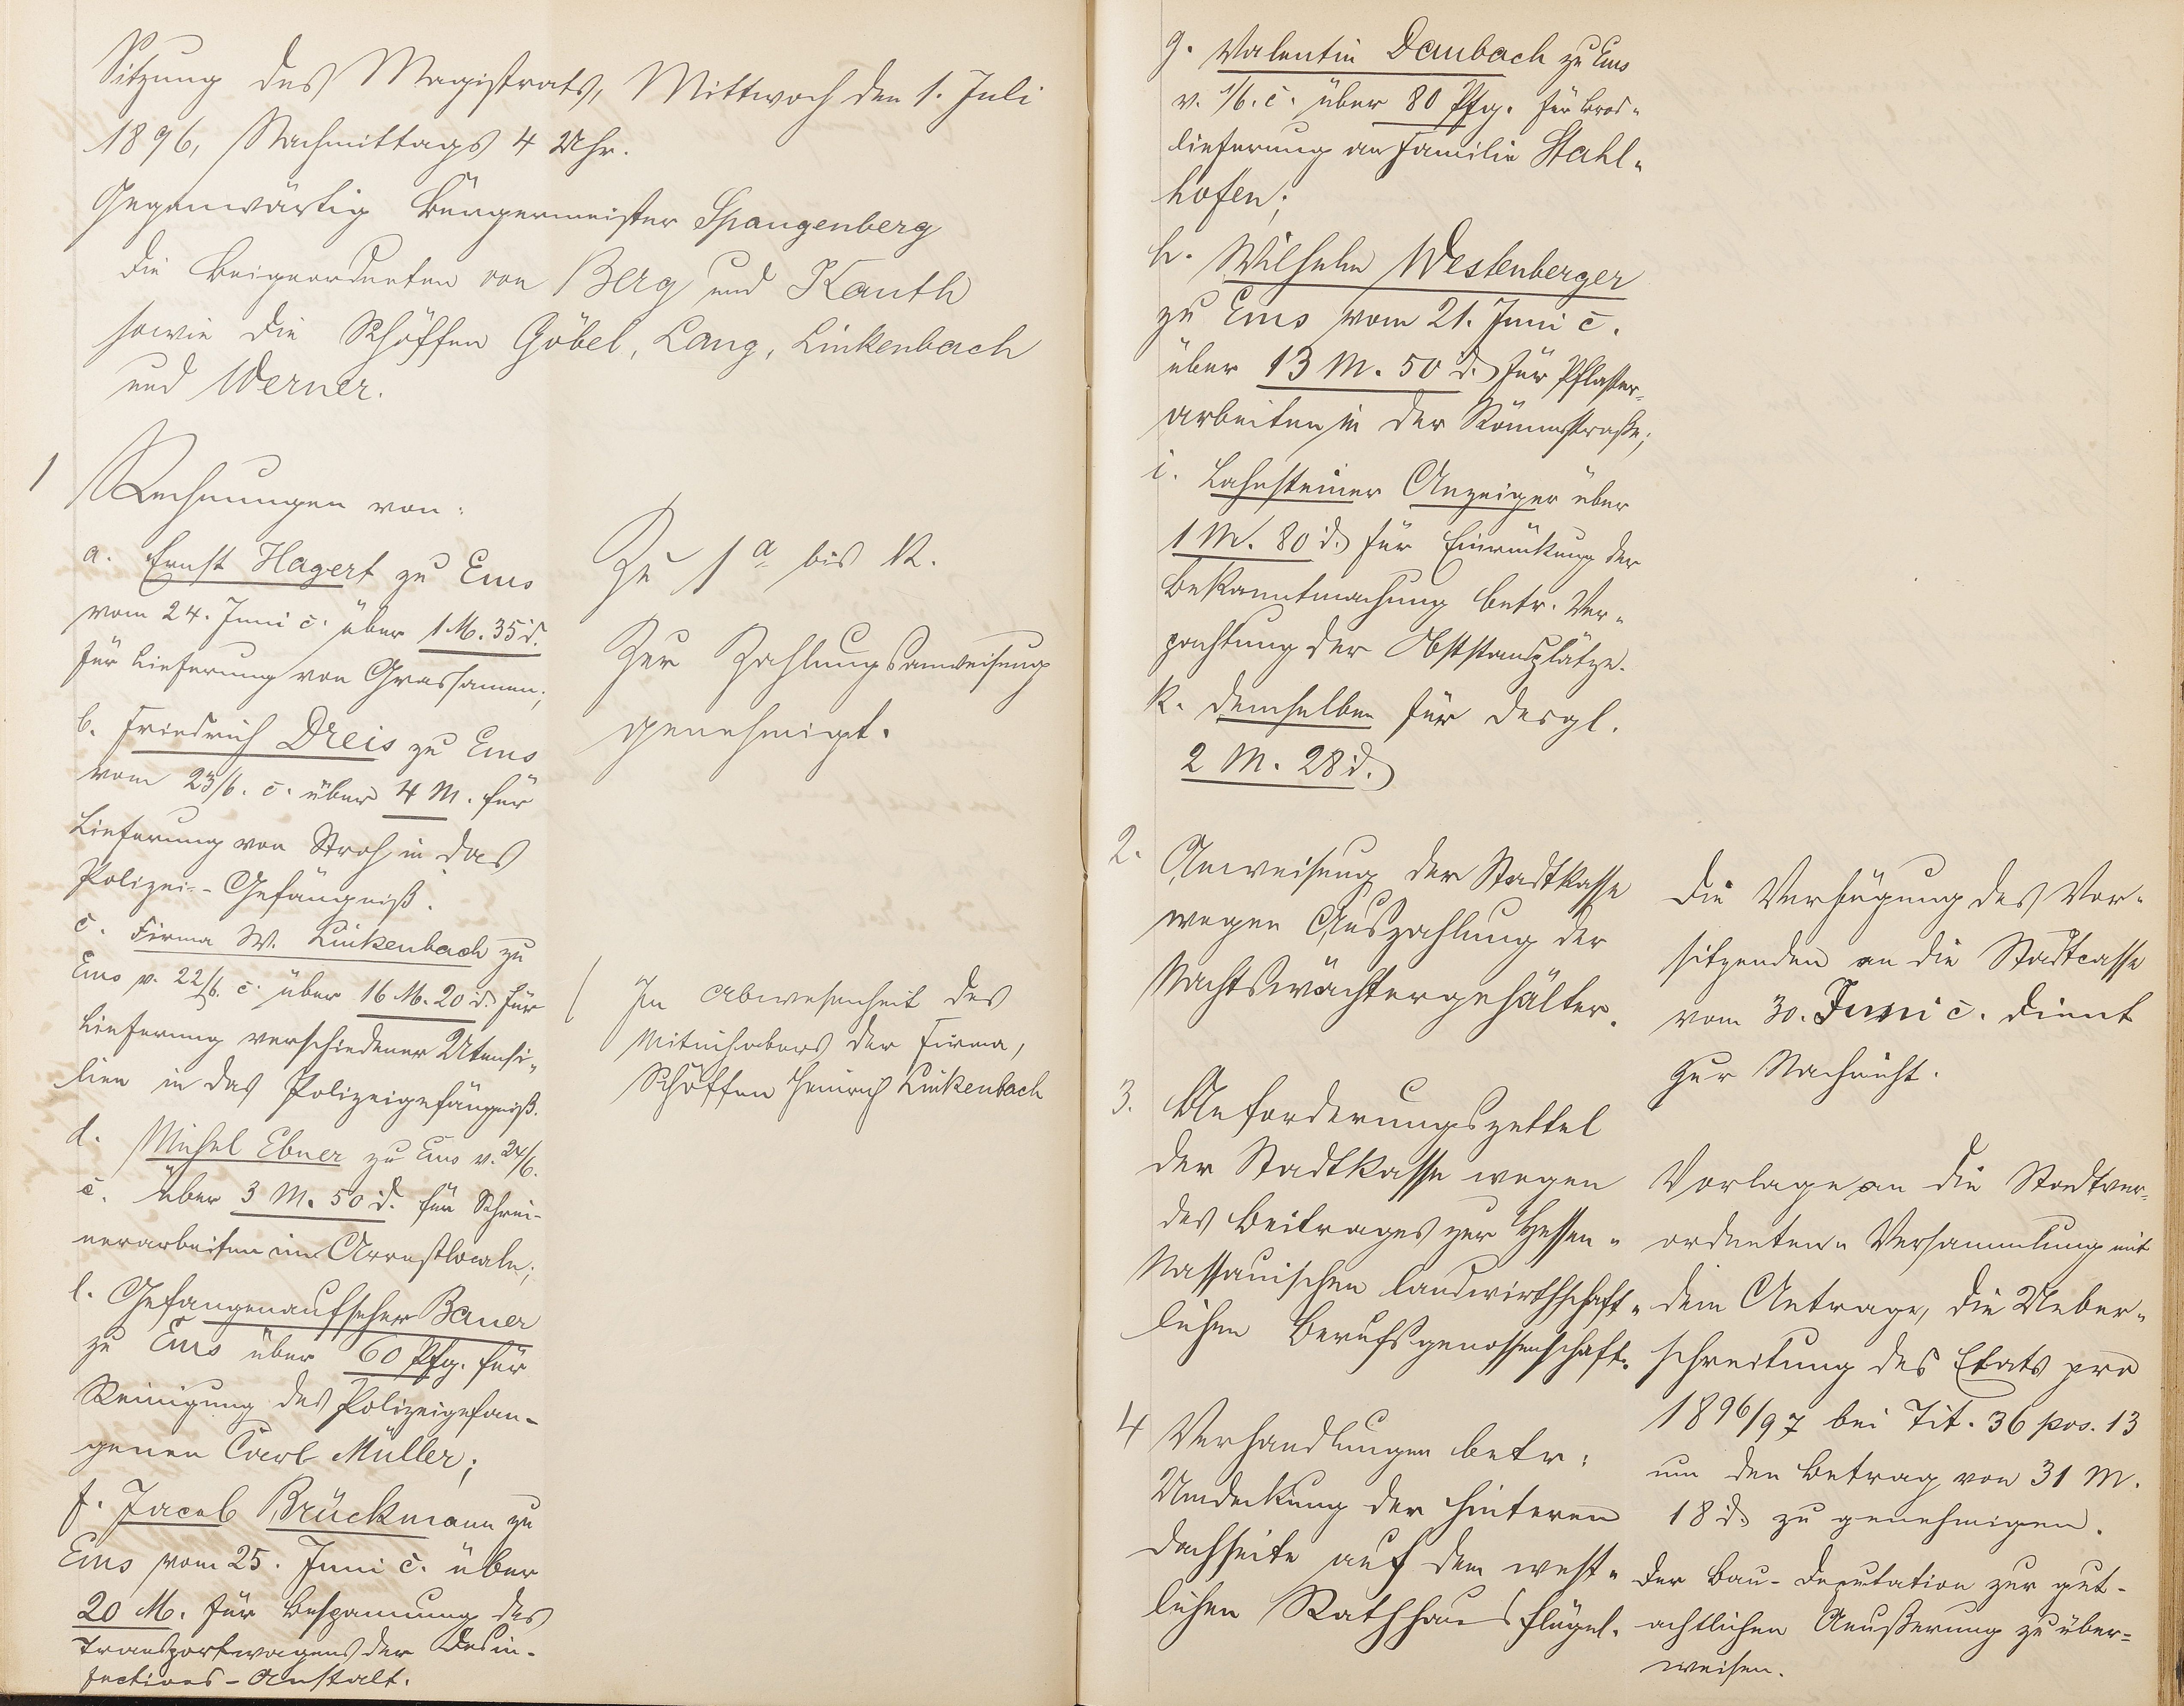 Sitzung des Magistrats, Mittwoch den 1. Juli
1896, Nachmittags 4 Uhr.
Gegenwärtig Bürgermeister Spangenberg
die Beigeordneten von Berg und Kauth
sowie die Schöffen Göbel, Lang, Linkenbach
und Werner.
1
Rechnungen von:
a. Ernst Hagert zu Ems
vom 24. Juni c. über 1 M. 35 d.
für Lieferung von Grassamen;
b. Friedrich Dreis zu Ems
vom 23/6. c. über 4 M. für
Lieferung von Stroh in das
Polizei-Gefängniß.
c. Firma W. Linkenbach zu
Ems v. 22/6. c. über 16 M. 20 d. für
Lieferung verschiedener Utensi-
lien in das Polizeigefängniß.
d. Michel Ebner zu Ems v. 24/6.
c. über 3 M. 50 d. für Schrei-
nerarbeiten im Arrestlocale;
e. Gefangenaufseher Bauer
zu Ems über 60 Pfg. für
Reinigung des Polizeigefan-
genen Carl Müller;
f. Jacob Brückmann zu
Ems vom 25. Juni c. über
20 M. für Bespannung des
Transportwagens der Desin-
fections-Anstalt.
Zu 1 a bis k.
Zur Zahlungsanweisung
genehmigt.
In Abwesenheit des
Mitinhabers der Firma,
Schöffen Heinrich Linkenbach
g. Valentin Daubach zu Ems
v. 1/6. c. über 80 Pfg. für Brod-
lieferung an Familie Stahl-
hofen;
h. Wilhelm Westenberger
zu Ems vom 21. Juni c.
über 13 M. 50 d. für Pflaster-
arbeiten in der Römerstraße;
i. Lahnsteiner Anzeiger über
1 M. 80 d. für Einrückung der
Bekanntmachung betr. Ver-
pachtung der Obststandplätze.
k. demselben für desgl.
2 M. 28 d.
2. Anweisung der Stadtkasse
wegen Auszahlung der
Nachtswächtergehälter.
Die Verfügung des Vor-
sitzenden an die Stadtcasse
vom 30. Juni c. dient
zur Nachricht.
3. Anforderungszettel
der Stadtkasse wegen
des Beitrages zur Hessen-
Nassauischen landwirthschaft-
lichen Berufsgenossenschaft.
Vorlage an die Stadtver-
ordneten-Versammlung mit
dem Antrage, die Ueber-
schreitung des Etats pro
1896/97 bei Tit. 36 pos. 13
um den Betrag von 31 M.
18 d. zu genehmigen.
4 Verhandlungen betr:
Umdeckung der hinteren
Dachseite auf dem west-
lichen Rathhausflügel.
Der Bau-Deputation zur gut-
achtlichen Aeußerung zu über-
weisen.